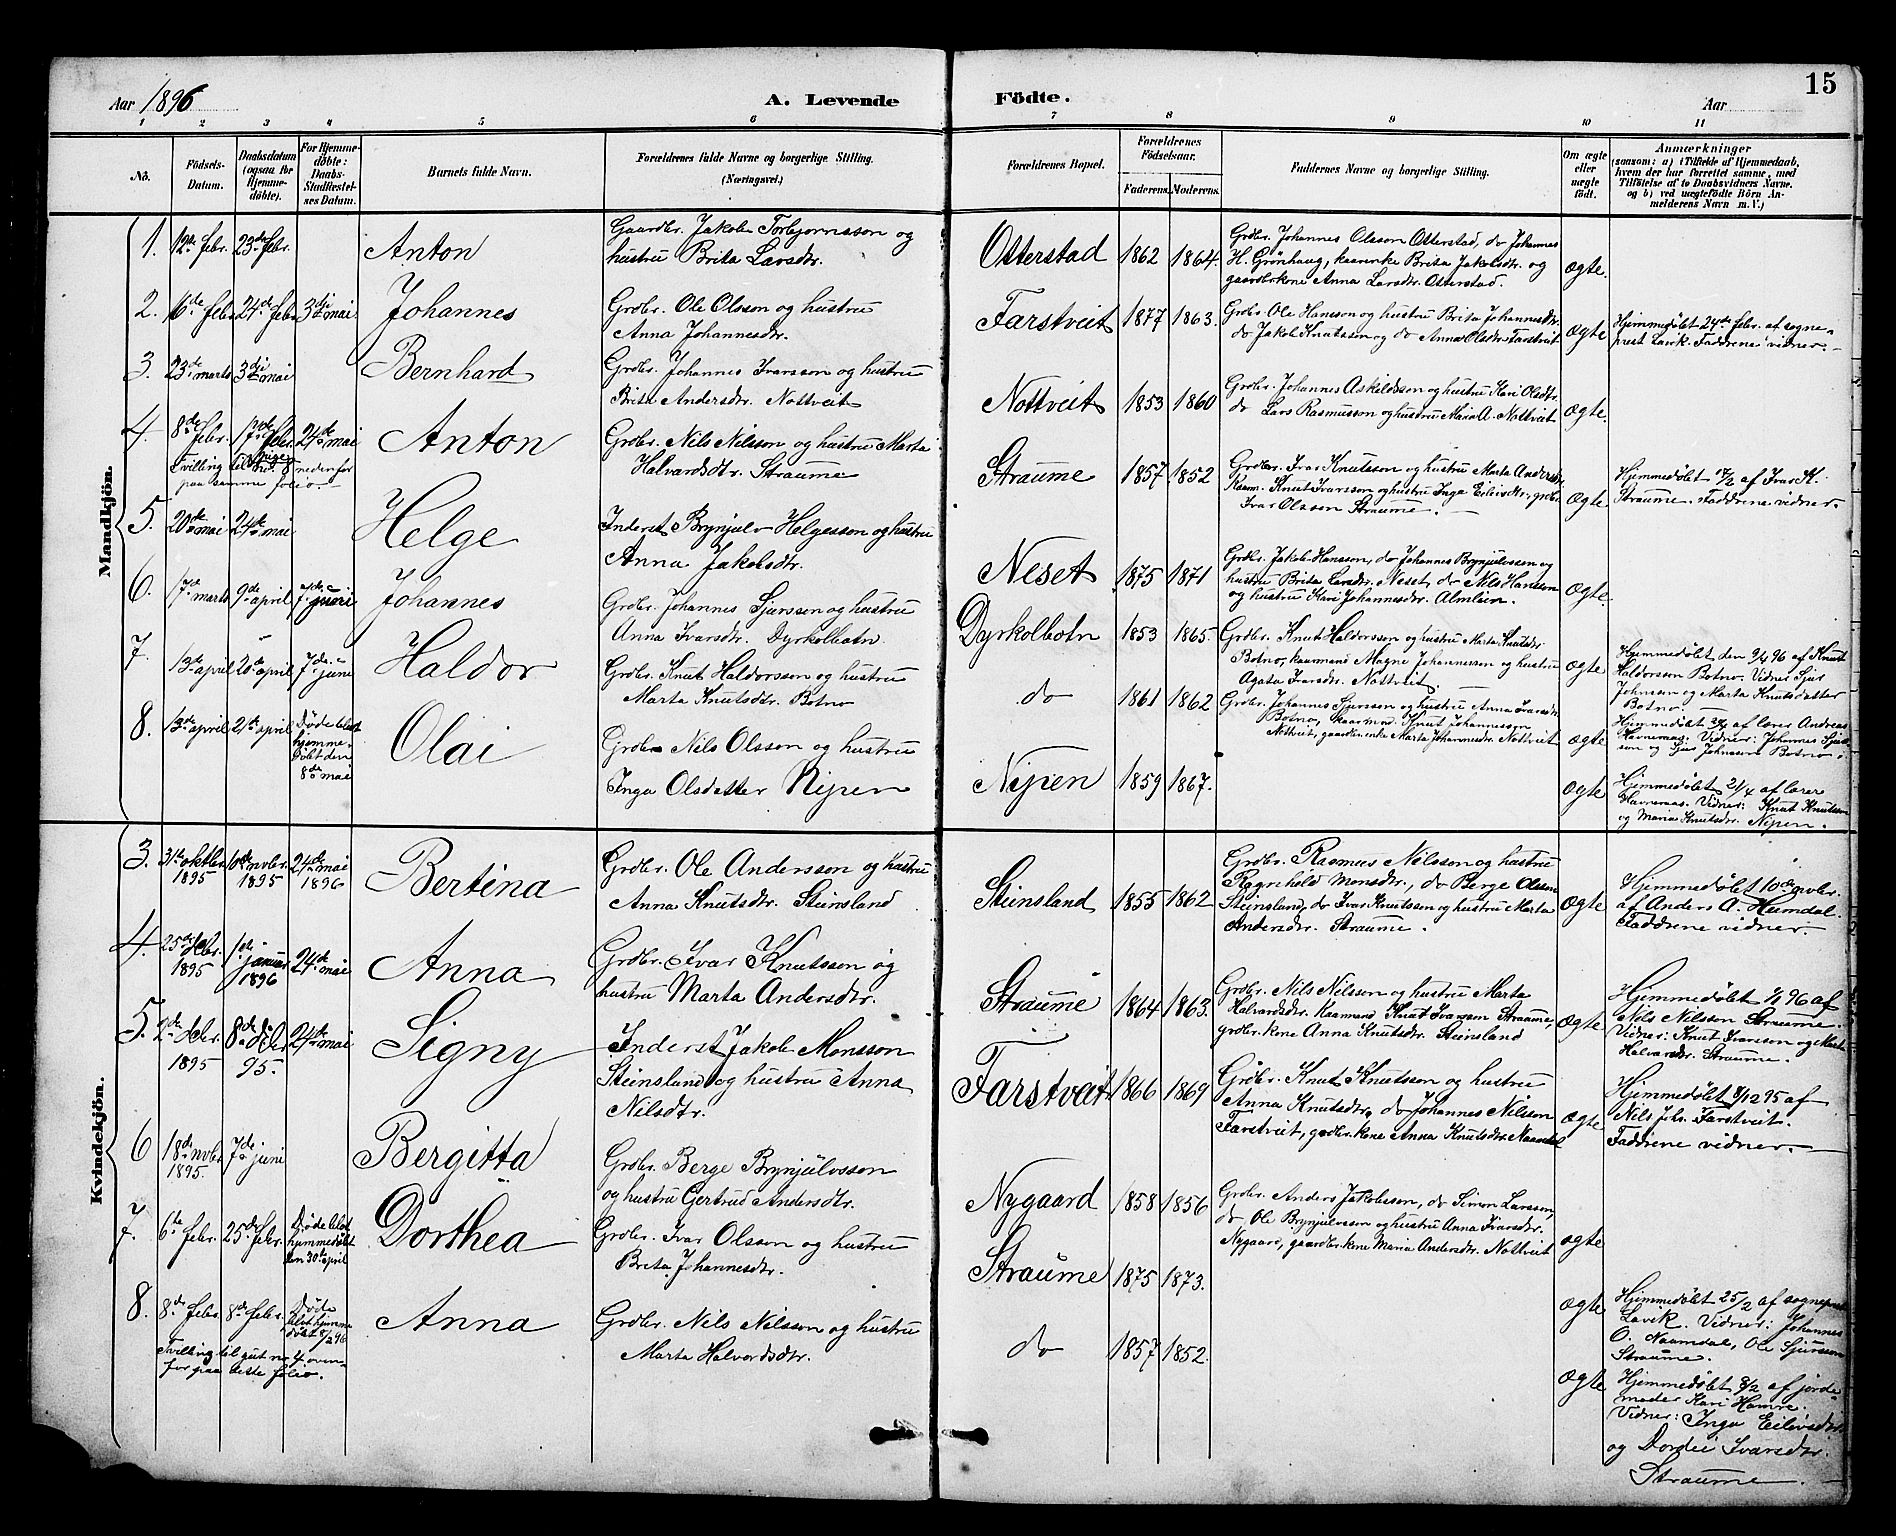 Aar 1896
A. Levende
Födte.
Aar
15
1 2 3 4 5 6 7 8 9 10 11
No.
Födsels-
Datum.
Daabsdatum
(ogsaa for
Hjemme-
döbte).
For Hjemme-
döbte:
Daabs-
Stadfæstel-
ses Datum.
Barnets fulde Navn.
Forældrenes fulde Navne og borgerlige Stilling.
(Næringsvei.)
Forældrenes Bopæl.
Forældrenes
Födselsaar.
Faderens. Moderens.
Faddernes Navne og borgerlige Stilling.
Om ægte
eller
uægte
födt.
Anmærkninger
(saasom: a) i Tilfælde af Hjemmedaab,
hvem der har forrettet samme, med
Tilföielse af to Daabsvidners Navne.
og b) ved uægtefödte Börn An-
melderens Navn m. V.)
Mandkjön.
1. 12te febr. 23de febr. Anton
Gaardbr. Jakob Torbjørnsson og
hustru Brita Larsdtr.
Osterstad 1862 1864.
Grdbr. Johannes Olsson Osterstad, do Johannes
H. Grönhaug, kaarenke Brita Jakobsdtr. og
gaardbr.kone Anna Larsdtr. Osterstad.
Ægte.
2. 16de febr 24de febr 3dje mai Johannes
Grdbr. Ole Olsson og hustru
Anna Johannesdtr.
Farstveit 1877 1863.
Grdbr. Ole Hansson og hustru Brita Johannesdtr.
do Jakob Knutsson og do Anna Olsdtr Farstveit
Ægte
Hjemmedøbt 24de febr. af sogne-
prest Lavik. Faddrene vidner.
3. 23de marts 3dje mai Bernhard
Grdbr. Johannes Ivarsson og hustru
Brita Andersdtr. Nottveit
Nottveit 1853 1860
Grdbr. Johannes Askildsson og hustru Kari Olsdtr.
do Lars Rasmusson og hustru Maria A. Nottveit
Ægte.
4. 8de febr. 17de febr. 24de mai Anton
Tvilling til pige No. 8 nedenfor
paa samme folio.
Grdbr. Nils Nilsson og hustru Marta
Halvardsdtr. Straume
Straume 1857 1852
Grdbr. Ivar Knutsson og hustru Marta Andersdtr
Kaarm. Knut Ivarsson og hustru Inga Eilevsdtr, grdbr.
Ivar Olsson Straume.
Ægte
Hjemmedøbt 17/2 af Ivar K.
Straume. Faddrene vidner.
5. 20de mai 24de mai Helge
Inderst Brynjulv Helgesson og hustru
Anna Jakobsdtr.
Neset 1875 1871
Grdbr. Jakob Hansson, do Johannes Brynjulvsson og
hustru Brita Larsdtr. Neset, do Nils Hansson
og hustru Kari Johannesdtr. Almlien.
Ægte.
6. 17de marts 9de april 7de juni Johannes
Grdbr. Johannes Sjursson og hustru
Anna Ivarsdtr. Dyrkolbotn
Dyrkolbotn 1853 1865.
Grdbr. Knut Haldorsson og hustru Marta Knutsdtr
Botno, kaarmand Magne Johannesson og hustru
Agata Ivarsdtr. Nottveit.
Ægte
Hjemmedøbt den 9/4 96 af Knut
Haldorsson Botno. Vidner Sjur
Johnsen og Marta Knutsdatter
Botno.
7. 13de april 20de april 7de juni Haldor
Grdbr. Knut Haldorsson og hustru
Marta Knutsdtr. Botno
do 1861 1862
Grdbr. Johannes Sjursson og hustru Anna Ivarsdtr
Botno, kaarmd. Knut Johannesson
Nottveit, gaardbr.enke Marta Johannesdr. Nottveit
Ægte
af lærer Andreas
Havneraas. Vidner: Johannes Sjurs
son og Sjur Johnsen Botno.
8. 13de april 21de april Døde blot
hjemme-
døbt den
8de mai
Olai
Grdbr Nils Olsson og hustru
Inga Olsdatter Nipen
Nipen 1859 1867.
Ægte
Hjemmedøbt 21/4 af lærer
Havneraas. Vidner: Knut Knutsson
og Maria Knutsdtr. Nipen.
Kvindekjön.
3. 31te oktbr. 1895 10de novbr. 1895 24de mai 1896 Bertina
Grdbr. Ole Andersson og hustru
Anna Knutsdtr. Steinsland
Steinsland 1855 1862
Grdbr. Rasmus Nilsson og hustru
Ragnhild Monsdtr., do Berge Olsson
Steinsland, do Ivar Knutsson og hustru Marta
Andersdtr. Straume.
Ægte
Hjemmedøbt 10de novbr.
af Anders A. Heimdal.
Faddrene vidner.
4. 25de debr. 1895 1de januar 1896 24de mai Anna
Grdbr. Ivar Knutsson og
hustru Marta Andersdtr.
Straume 1864 1863.
Grdbr. Nils Nilsson og hustru Marta
Halvardsdr. Kaarmand Knut Ivarsson Straume,
grdbr. kone Anna Knutsdtr. Steinsland
Ægte
Hjemmedøbt 1/1 96 af
Nils Nilsson Straume.
Vidner: Knut Ivarsson og Marta
Halvardsdtr. Straume.
5. 2de debr. 1895 8de debr 95. 24de mai Signy
Inderst Jakob Monsson
Steinsland og hustru Anna
Nilsdtr.
Farstveit 1866 1869
Grdbr. Knut Knutsson og hustru
Anna Knutsdtr, do Johannes Nilsson
Farstveit, grdbr. kone Anna Knutsdtr. Naamdal
Ægte
Hjemmedøbt 8/12 95 af
Nils Johs. Farstveit.
Faddrene vidner.
6 18de novbr 1895. 7de juni Bergitta
Grdbr. Berge Brynjulvsson
og hustru Gertrud Andersdtr.
Nygaard 1858 1856
Grdbr. Anders Jakobsson, do Simon Larsson,
do Ole Brynjulvsson og hustru Anna Ivarsdtr.
Nygaard, gaardbr. kone Maria Andersdtr. Nottveit
Ægte
7. 6te febr. 25de febr. Døde blot
hjemmedøbt
den 30te april
Dorthea
Grdbr. Ivar Olsson og hustru
Brita Johannesdtr.
Straume 1875 1873.
Ægte
Hjemmedøbt 25/2 af sogneprest
Lavik. Vidner: Johannes
O. Naamdal, Ole Sjursson
Straume.
8. 8de febr. 8de febr. Døde
blot hjemme
døbt 8/2 96
Tvilling til gut no 4 oven-
for paa dette folio.
Anna
Grdbr. Nils Nilsson og hustru
Marta Halvordsdtr.
do 1857 1852.
Ægte
Hjemmedøbt 8/2 af jorde-
moder Kari Hamre.
Vidner: Inga Eilevsdtr
og Dordei Ivarsdtr.
Straume.